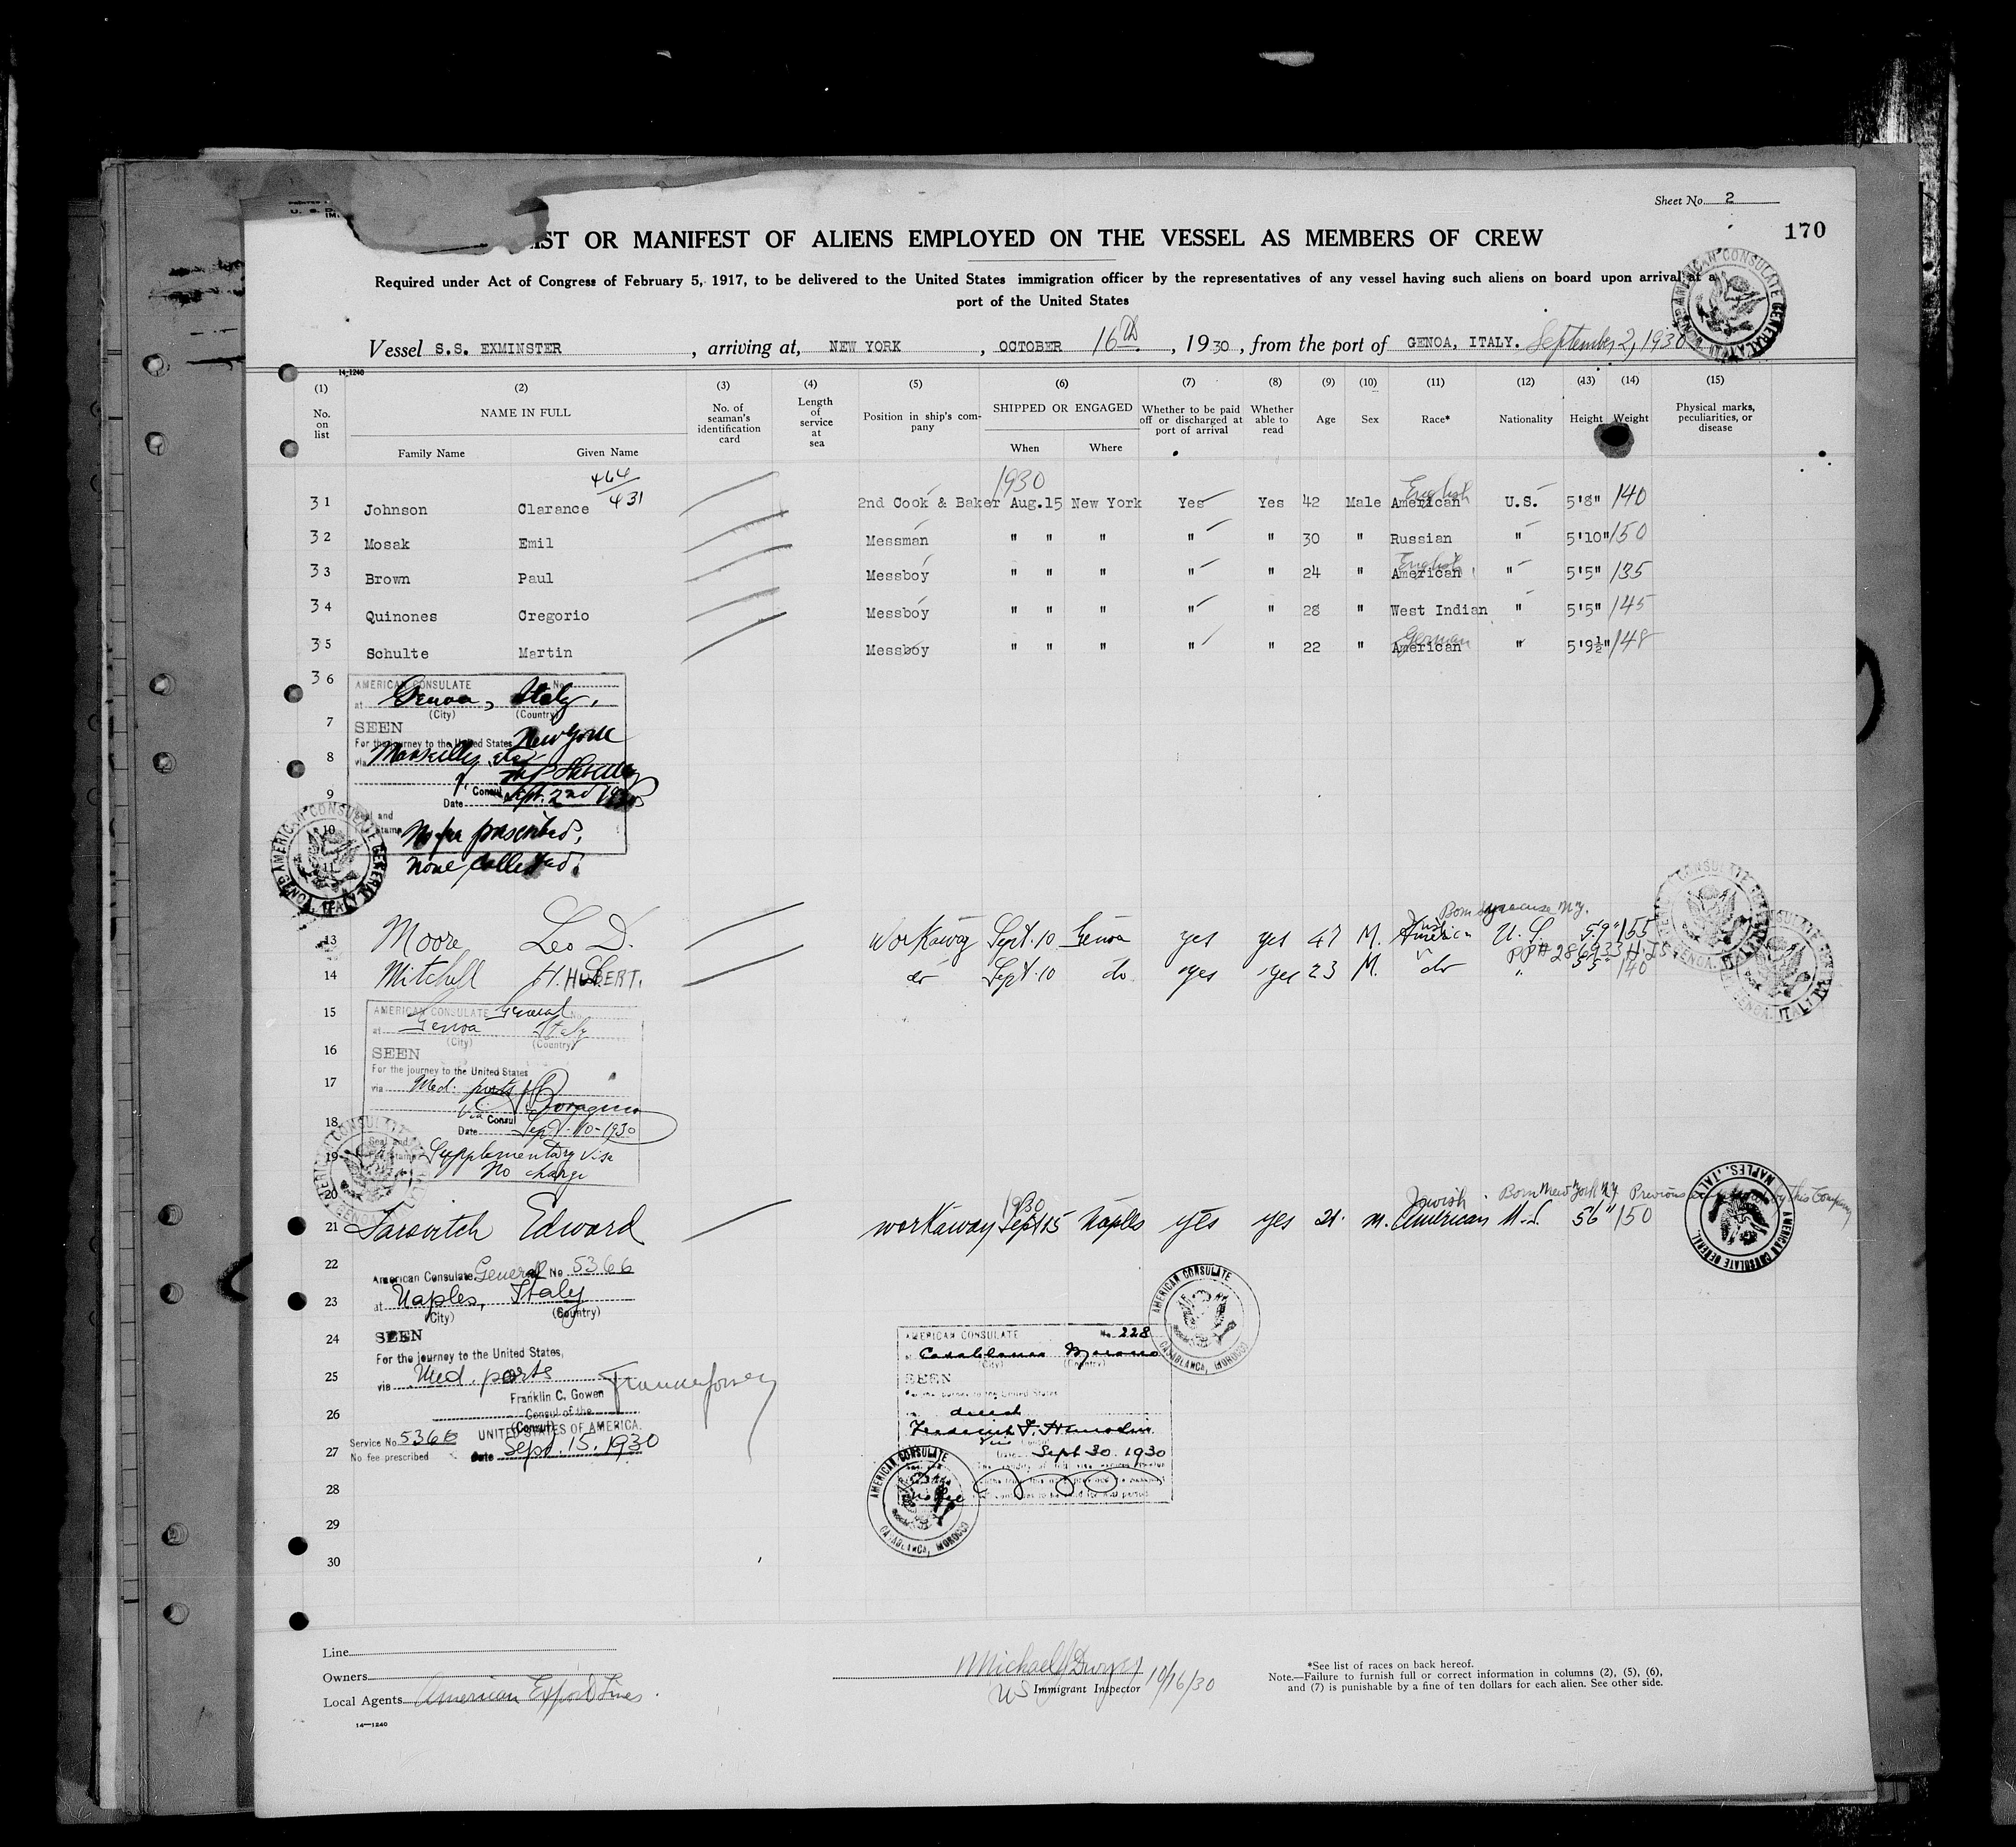 Sheet No. 2
170
LIST OR MANIFEST OF ALIENS EMPLOYED ON THE VESSEL AS MEMBERS OF CREW
Required under Act of Congress of February 5, 1917, to be delivered to the United States immigration officer by the representatives of any vessel having such aliens on board upon arrival at a
port of the United States
Vessel S.S. EXMINSTER, arriving at, NEW YORK, OCTOBER 16th, 1930, from the port of GENOA, ITALY. September 2, 1930
14-1240
(1) (2) (3) (4) (5) (6) (7) (8) (9) (10) (11) (12) (13) (14) (15)
No. on list
NAME IN FULL
Family Name Given Name
No. of seaman's identification card
Length of service at sea
Position in ship's company
SHIPPED OR ENGAGED
When Where
Whether to be paid off or discharged at port of arrival
Whether able to read
Age Sex Race* Nationality Height Weight
Physical marks, peculiarities, or disease
464
431
1930
English
31 Johnson Clarance 2nd Cook & Baker Aug.15 New York Yes Yes 42 Male American U.S. 5'8" 140
32 Mosak Emil Messman " " " " " 30 " Russian " 5'10" 150
English
33 Brown Paul Messboy " " " " " 24 " American " 5'5" 135
34 Quinones Cregorio Messboy " " " " " 28 " West Indian " 5'5" 145
German
35 Schulte Martin Messboy " " " " " 22 " American " 5'9½" 148
36
AMERICAN CONSULATE No.
at Genoa, Italy,
(City) (Country)
7
SEEN
For the journey to the United States New York
8
via Marseilles
9
Consul
Date Sept. 2nd 1930
Seal and Fee Stamp
10
No fee prescribed,
11
None collected.
12
AMERICAN CONSULATE GENERAL GENOA, ITALY
Born Syracuse N.Y.
13 Moore Leo D. Workaway Sept. 10 Genoa yes yes 47 M. American U.S. 5'9" 155
PP# 286933
14 Mitchell H. HUBERT. do Sept. 10 do yes yes 23 M. do " 5'5" 140
15
AMERICAN CONSULATE General No.
at Genoa Italy
(City) (Country)
16
SEEN
For the journey to the United States
17
via Med. ports
18
Vice Consul
Date Sept-10-1930
19
Supplementary visa
No charge
20
1930
Jewish Born New York N.Y. Previous by this Company
21 Edward workaway Sept 15 Naples yes yes 21 m. American U.S. 5'6" 150
22
American Consulate General No 5366
23
at Naples, Italy
(City) (Country)
24
SEEN
For the journey to the United States,
25
via Med. ports
Franklin C. Gowen
26
Consul of the
(Consul)
UNITED STATES OF AMERICA.
Service No. 5366
27
Date Sept. 15. 1930
No fee prescribed
28
29
30
AMERICAN CONSULATE GENERAL NAPLES, ITALY
AMERICAN CONSULATE CASABLANCA, MOROCCO
AMERICAN CONSULATE No. 228
at Casablanca Morocco
(City) (Country)
SEEN
For the journey to the United States
direct
Vice Consul
Date Sept 30. 1930
AMERICAN CONSULATE CASABLANCA, MOROCCO
Line
Owners
Local Agents American Export Lines.
14-1240
Michael J Dwyer
US Immigrant Inspector 10/16/30
*See list of races on back hereof.
Note.—Failure to furnish full or correct information in columns (2), (5), (6),
and (7) is punishable by a fine of ten dollars for each alien. See other side.